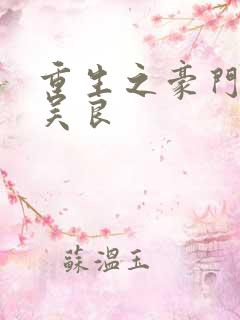 重生之豪門
吴良
蘇溫玉